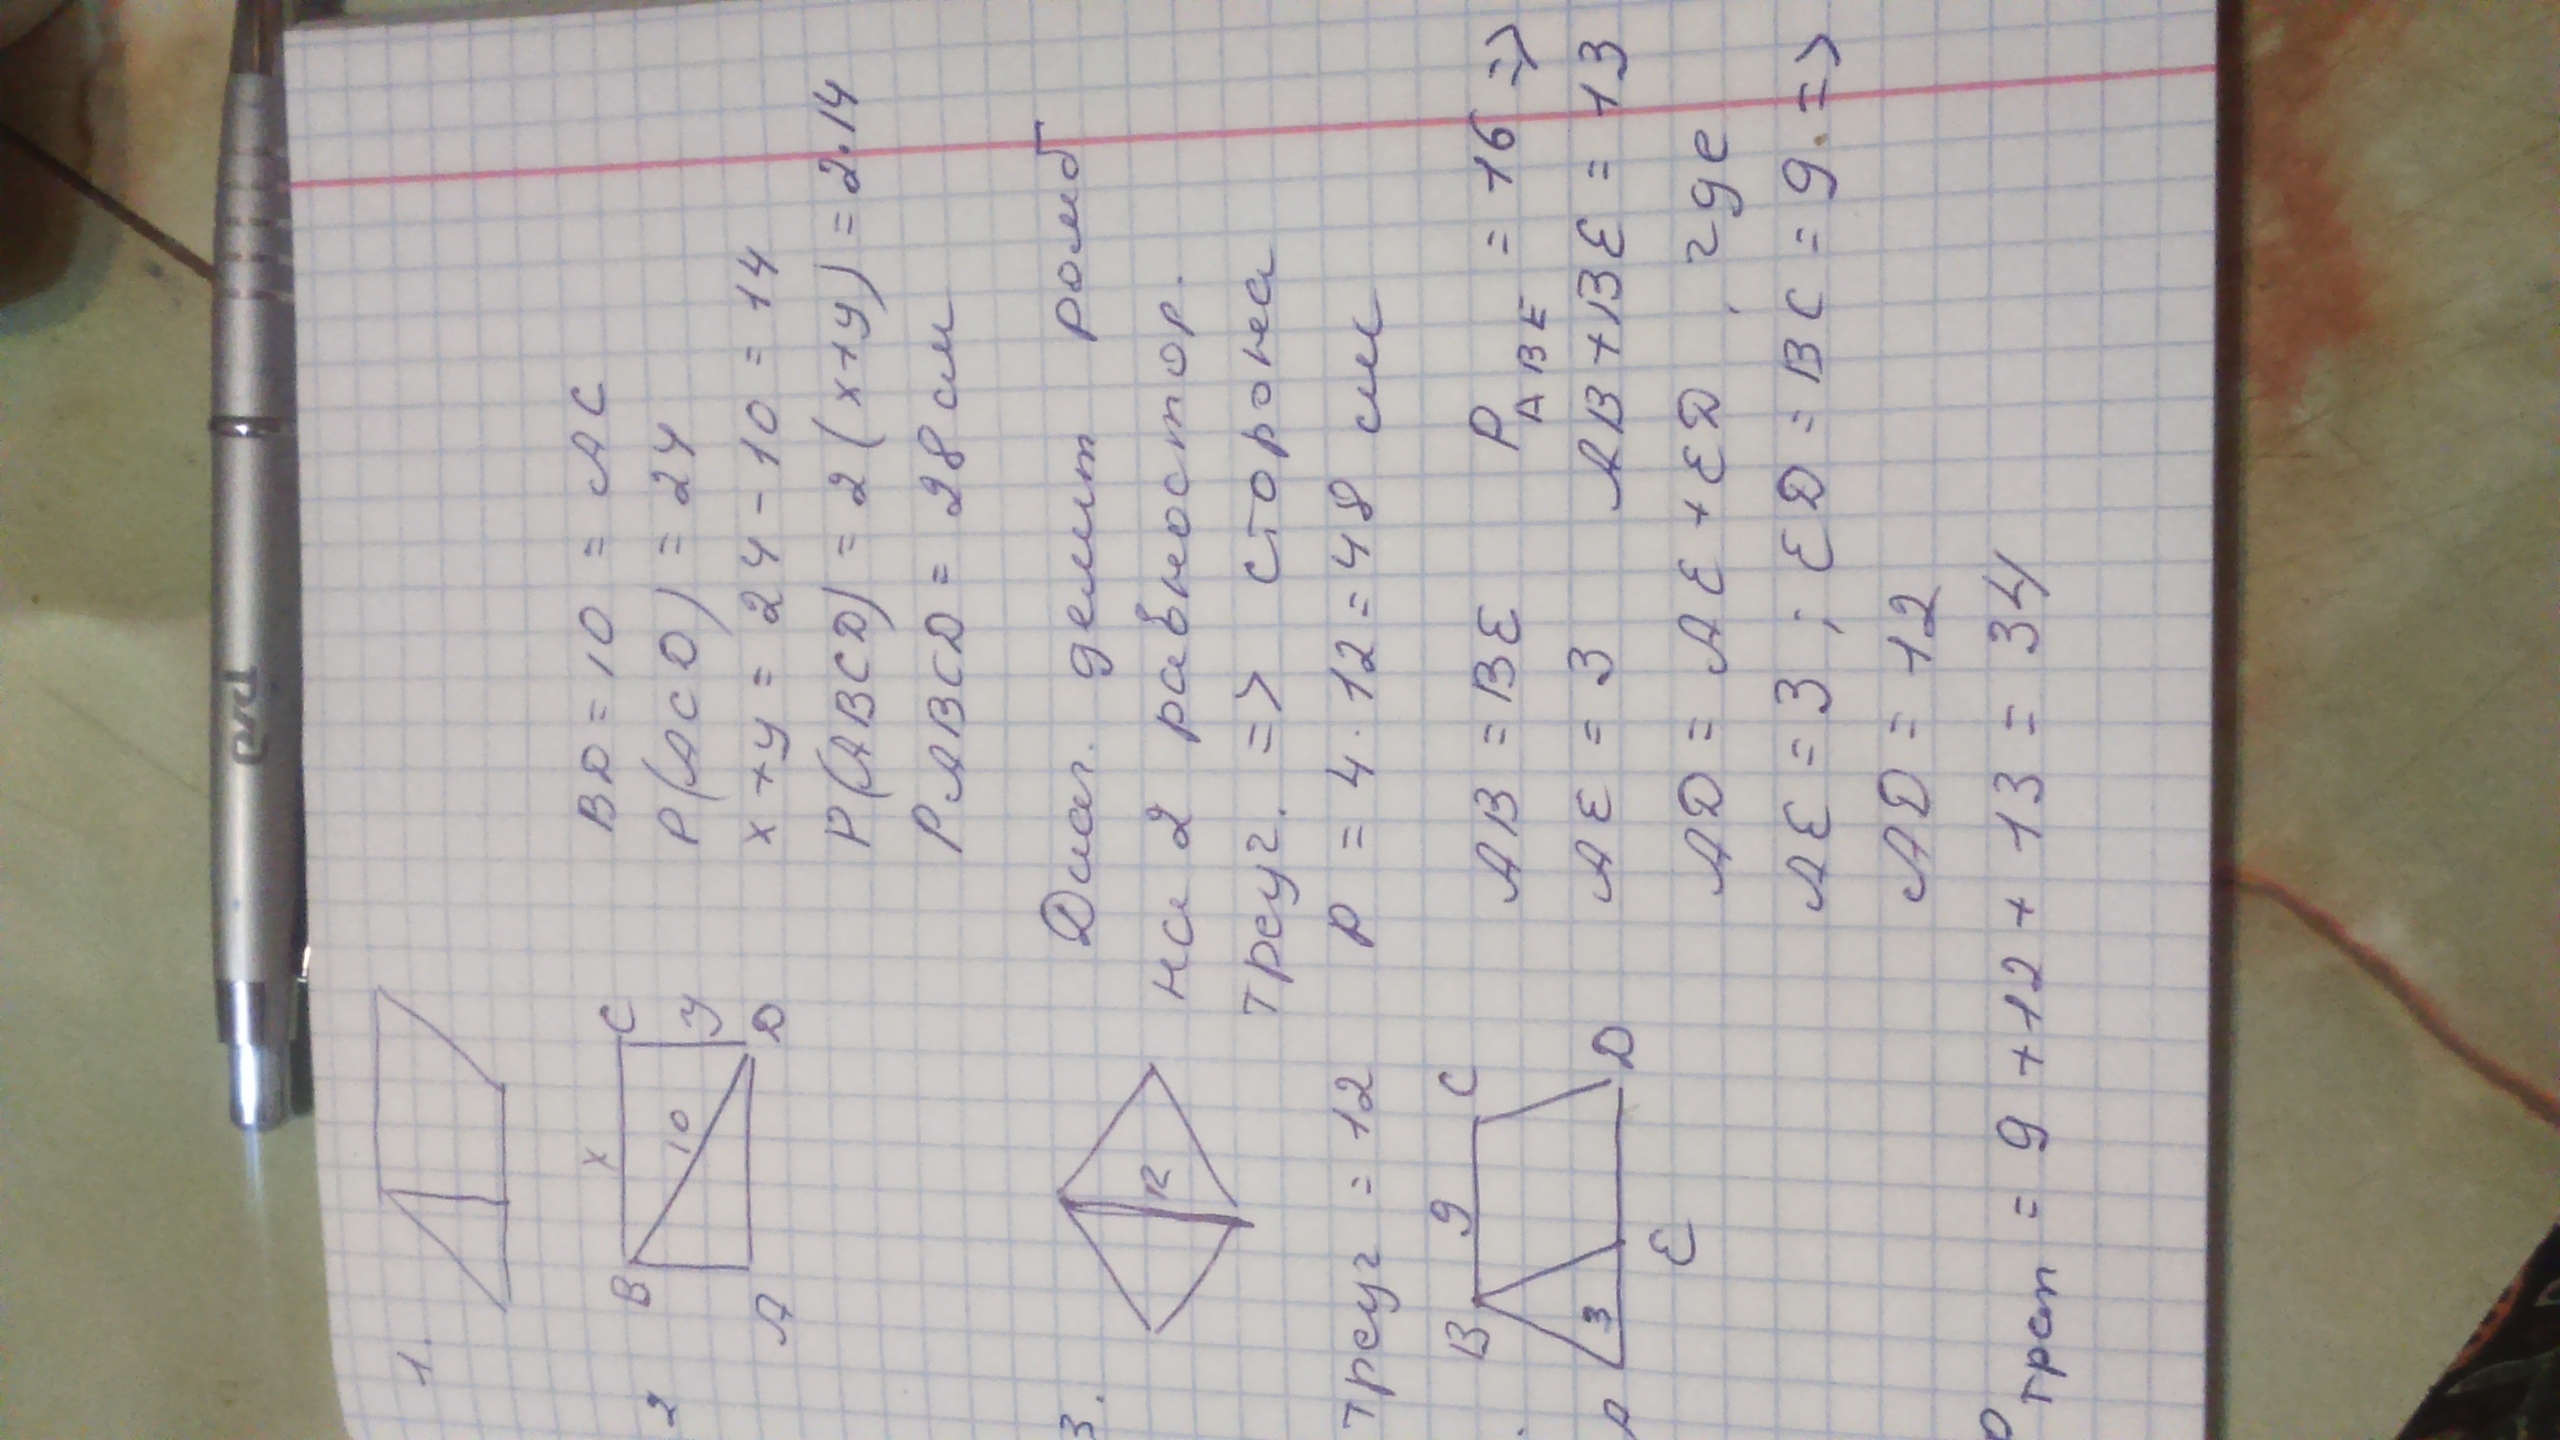 1.
2
B x C
10 y
A D
BD = 10 = AC
P(ACD) = 24
x + y = 24 - 10 = 14
P(ABCD) = 2(x+y) = 2.14
PABCD = 28 см
3.
12
Диаг. делит ромб
на 2 равностор.
треуг. => сторона
треуг = 12 P = 4 · 12 = 48 см
B 9 C
3
A E D
AB = BE P ABE = 16 =>
AE = 3 AB + BE = 13
AD = AE + ED, где
AE = 3; ED = BC = 9. =>
AD = 12
P трап = 9 + 12 + 13 = 34